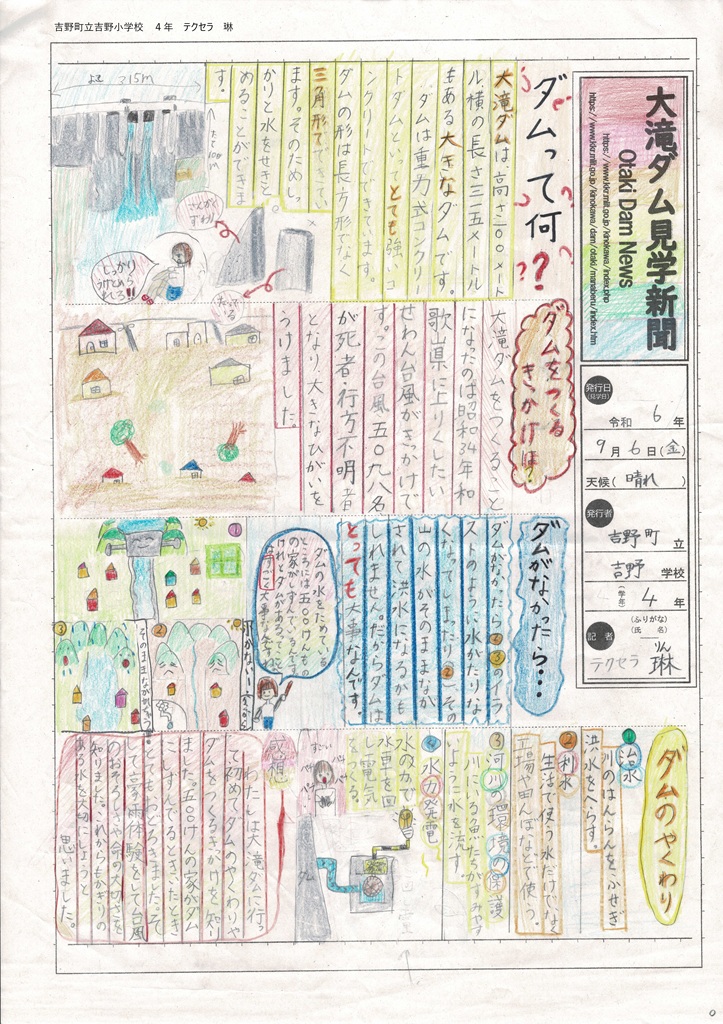 吉野町立吉野小学校　４年　テクセラ　琳
大滝ダム見学新聞
Otaki Dam News
https://www.kkr.mlit.go.jp/kinokawa/index.php
https://www.kkr.mlit.go.jp/kinokawa/dam/otaki/manaberu/index.htm
発行日
(見学日)
令和 6 年
9月6日(金)
天候( 晴れ )
発行者
吉野町 立
吉野 学校
(学年) 4 年
記者
(ふりがな)
(氏名)
りん
テクセラ 琳
ダムって何??
大滝ダムは、高さ一〇〇メート
ル横の長さ三一五メートル
もある大きなダムです。
ダムは重力式コンクリー
トダムといってとても強いコ
ンクリートでできています。
ダムの形は長方形でなく
三角形でできてい
ます。そのためしっ
かりと水をせきと
めることができま
す。
よこ 315m
たて100m
さんかく
ずわり
たってる
しっかり
うけとめら
れる!!
ダムをつくる
きっかけは?
大滝ダムをつくること
になったのは昭和34年和
歌山県に上りくしたい
せわん台風がきっかけで
す。この台風五〇九八名
が死者・行方不明者
となり、大きなひがいを
うけました。
ダムがなかったら・・・
ダムがなかったら②③のイラ
ストのように水がたりな
くなってしまったり②、その
山の水がそのままなが
されて洪水になるかも
しれません。だからダムは
とっても大事なんです。
ダムの水をためている
ところには五〇〇けんもの
の家がしずんでいるんです
けれどダムがあるってこと
すごく大事な事だね
①
②
③
ダムのやくわり
①治水
川のはんらんをふせぎ
洪水をへらす。
②利水
生活で使う水だけでなく
工場や田んぼなどで使う。
③河川の環境の保護
川にいる魚たちがすみやす
いように水を流す。
④水力発電
水の力で
水車を回
し、電気
をつくる。
すご〜い
ダム
感想
わたしは大滝ダムに行っ
て初めてダムのやくわりや
ダムをつくるきっかけを知り
ました。五〇〇けんの家がダム
にしずんでるときいたとき
とてもおどろきました。そ
して豪雨体験をして台風
のおそろしさや命の大切さを
知りました。これからもかぎりの
ある水を大切にしようと
思いました。